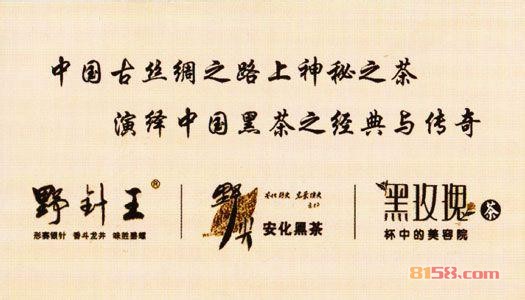 中国古丝绸之路上神秘之茶
演绎中国黑茶之经典与传奇
野针王®
形赛银针 香斗龙井 味胜碧螺
野尖
安化黑茶
黑玫瑰茶
杯中的美容院
8158.com